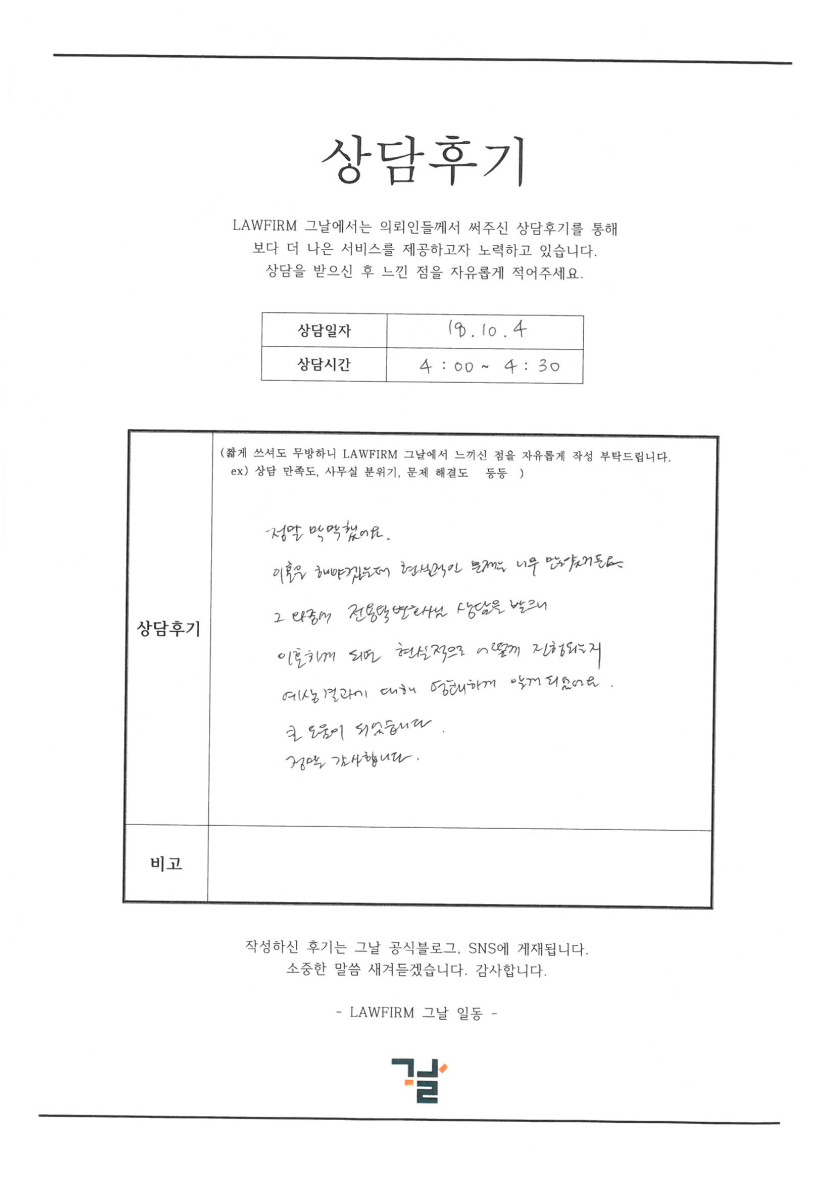 상담후기
LAWFIRM 그날에서는 의뢰인들께서 써주신 상담후기를 통해
보다 더 나은 서비스를 제공하고자 노력하고 있습니다.
상담을 받으신 후 느낀 점을 자유롭게 적어주세요.
상담일자 18.10.4
상담시간 4:00 ~ 4:30
(짧게 쓰셔도 무방하니 LAWFIRM 그날에서 느끼신 점을 자유롭게 작성 부탁드립니다.
ex) 상담 만족도, 사무실 분위기, 문제 해결도 등등 )
정말 막막했어요.
이혼을 해야겠는데 현실적인 문제는 너무 많았거든요
상담후기
그 와중에 변호사님 상담을 받으니
이혼하게 되면 현실적으로 어떻게 진행되는지
예상결과에 대해 알게 되었어요.
큰 도움이 되었습니다.
정말 감사합니다.
비고
작성하신 후기는 그날 공식블로그, SNS에 게재됩니다.
소중한 말씀 새겨듣겠습니다. 감사합니다.
- LAWFIRM 그날 일동 -
그날